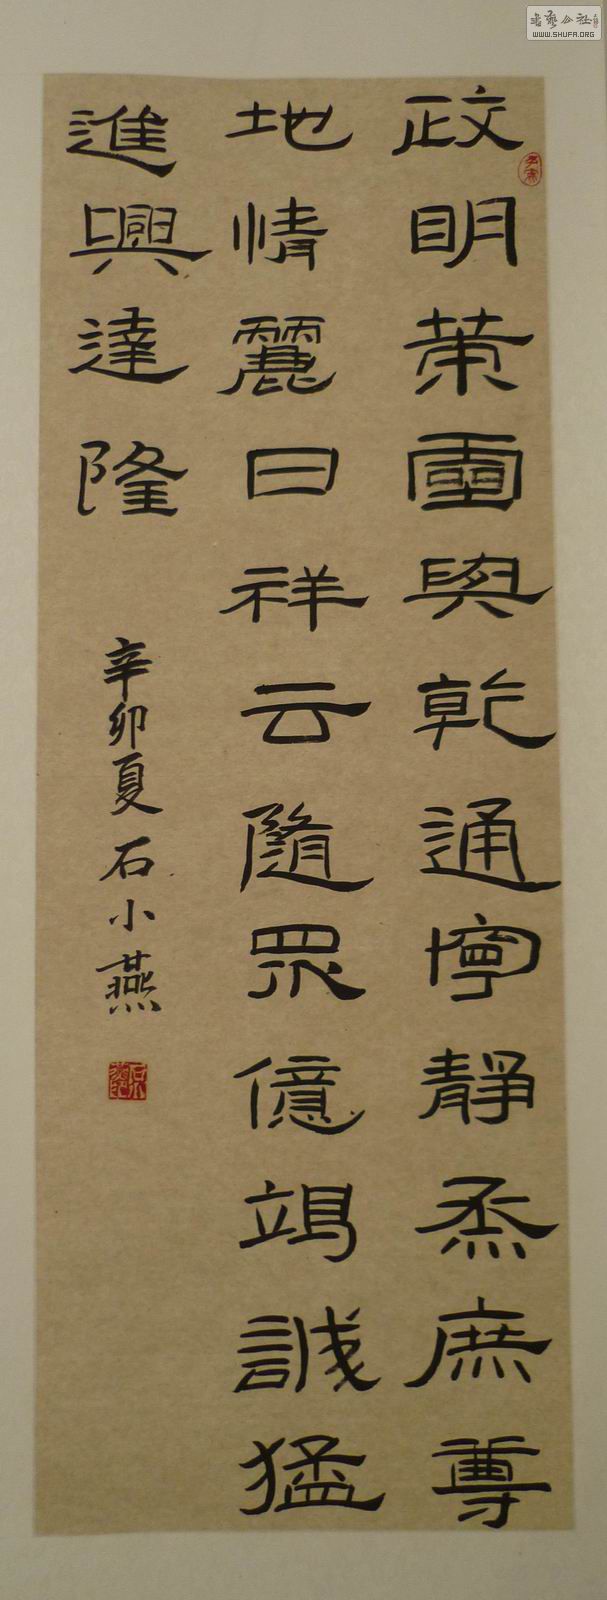 政明策靈與乾通寧靜烝庶尊
地情麗日祥云隨眾億竭誠猛
進興達隆
辛卯夏石小燕
書藝公社
WWW.SHUFA.ORG